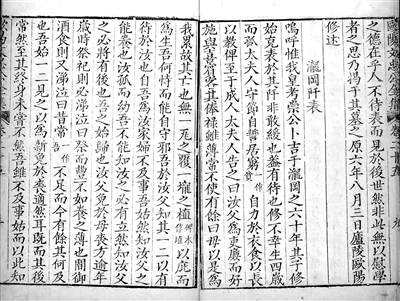 歐陽文忠公全集 卷二十五
之德在乎人不待表而見於後世然非此無以慰學
者之思乃揭于其墓之原六年八月三日廬陵歐陽
修述
瀧岡阡表
嗚呼惟我皇考崇公卜吉于瀧岡之六十年其子修
始克表於其阡非敢緩也蓋有待也修不幸生四歲
而孤太夫人守節自誓居窮一作貧自力於衣食以長
以教俾至于成人太夫人告之曰汝父爲吏廉而好
施與喜賓客其俸祿雖薄常不使有餘曰毋以是爲
我累故其亡也無一瓦之覆一壠之植以庇而
爲生吾何恃而能自守邪吾於汝父知其一二以有
待於汝也自吾爲汝家婦不及事吾姑然知汝父之
能養也汝孤而幼吾不能知汝之必有立然知汝父
之必將有後也吾之始歸也汝父免於母喪方逾年
歲時祭祀則必涕泣曰祭而豐不如養之薄也間御
酒食則又涕泣曰昔常不足而今有餘其何及
也吾始一二見之以爲新免於喪適然耳既而其後
常然至其終身未嘗不然吾雖不及事姑而以此知